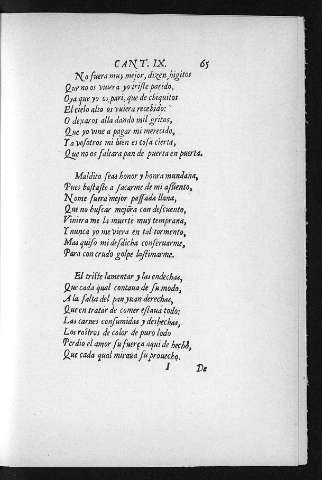 CANT. IX. 65
No fuera muy mejor, dizen, hijitos
Que no os vuiera yo triste parido,
O ya que yo os pari, que de chiquitos
El cielo alto os vuiera recebido:
O dexaros alla dando mil gritos,
Que yo vine a pagar mi merecido,
Y a vosotros mi bien es cosa cierta,
Que no os faltara pan de puerta en puerta.
Maldita seas honor y honra mundana,
Pues bastaste a sacarme de mi assiento,
No me fuera mejor passada llana,
Que no buscar mejora con descuento,
Viniera me la muerte muy temprana,
Y nunca yo me viera en tal tormento,
Mas quiso mi desdicha conseruarme,
Para con crudo golpe lastimarme.
El triste lamentar y las endechas,
Que cada qual contaua de su modo,
A la falta del pan yuan derechas,
Que en tratar de comer estaua todo:
Las carnes consumidas y deshechas,
Los rostros de color de puro lodo
Perdio el amor su fuerça aqui de hecho,
Que cada qual miraua su prouecho.
I De